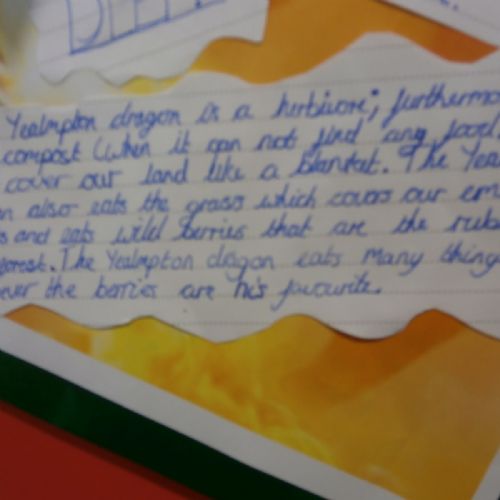 DIET
Yealmpton dragon is a herbivore; furthermo
compost (when it can not find any food
cover our land like a blanket. The Yea
n also eats the grass which covers our em
s and eats wild berries that are the rub
forest. The Yealmpton dragon eats many thing
ever the berries are he's favourite.